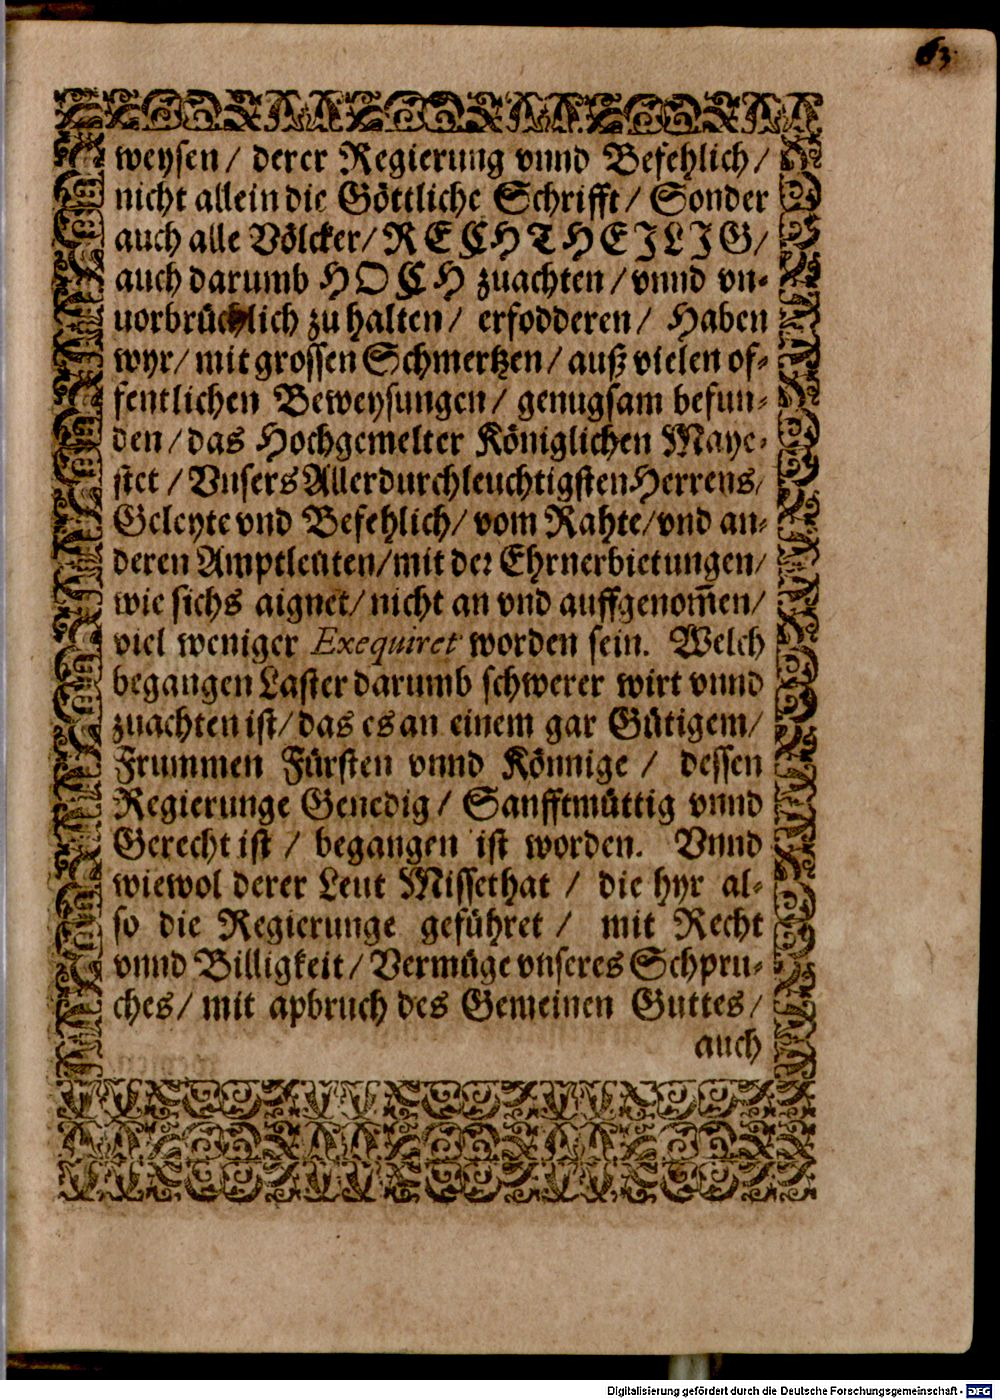 63
weysen / derer Regierung vnnd Befehlich /
nicht allein die Göttliche Schrifft / Sonder
auch alle Völcker / RECHTHEILIG /
auch darumb HOCH zuachten / vnnd vn-
uorbrüchlich zu halten / erfodderen / Haben
wyr / mit grossen Schmertzen / auß vielen of-
fentlichen Beweysungen / genugsam befun-
den / das Hochgemelter Königlichen Maye-
stet / Vnsers Allerdurchleuchtigsten Herrens /
Geleyte vnd Befehlich / vom Rahte / vnd an-
deren Amptleuten / mit der Ehrnerbietungen /
wie sichs aignet / nicht an vnd auffgenom̄en /
viel weniger Exequiret worden sein. Welch
begangen Laster darumb schwerer wirt vnnd
zuachten ist / das es an einem gar Gütigem /
Frummen Fürsten vnnd Könnige / dessen
Regierunge Genedig / Sanfftmüttig vnnd
Gerecht ist / begangen ist worden. Vnnd
wiewol derer Leut Missethat / die hyr al-
so die Regierunge geführet / mit Recht
vnnd Billigkeit / Vermüge vnseres Schpru-
ches / mit apbruch des Gemeinen Guttes /
auch
Digitalisierung gefördert durch die Deutsche Forschungsgemeinschaft - DFG